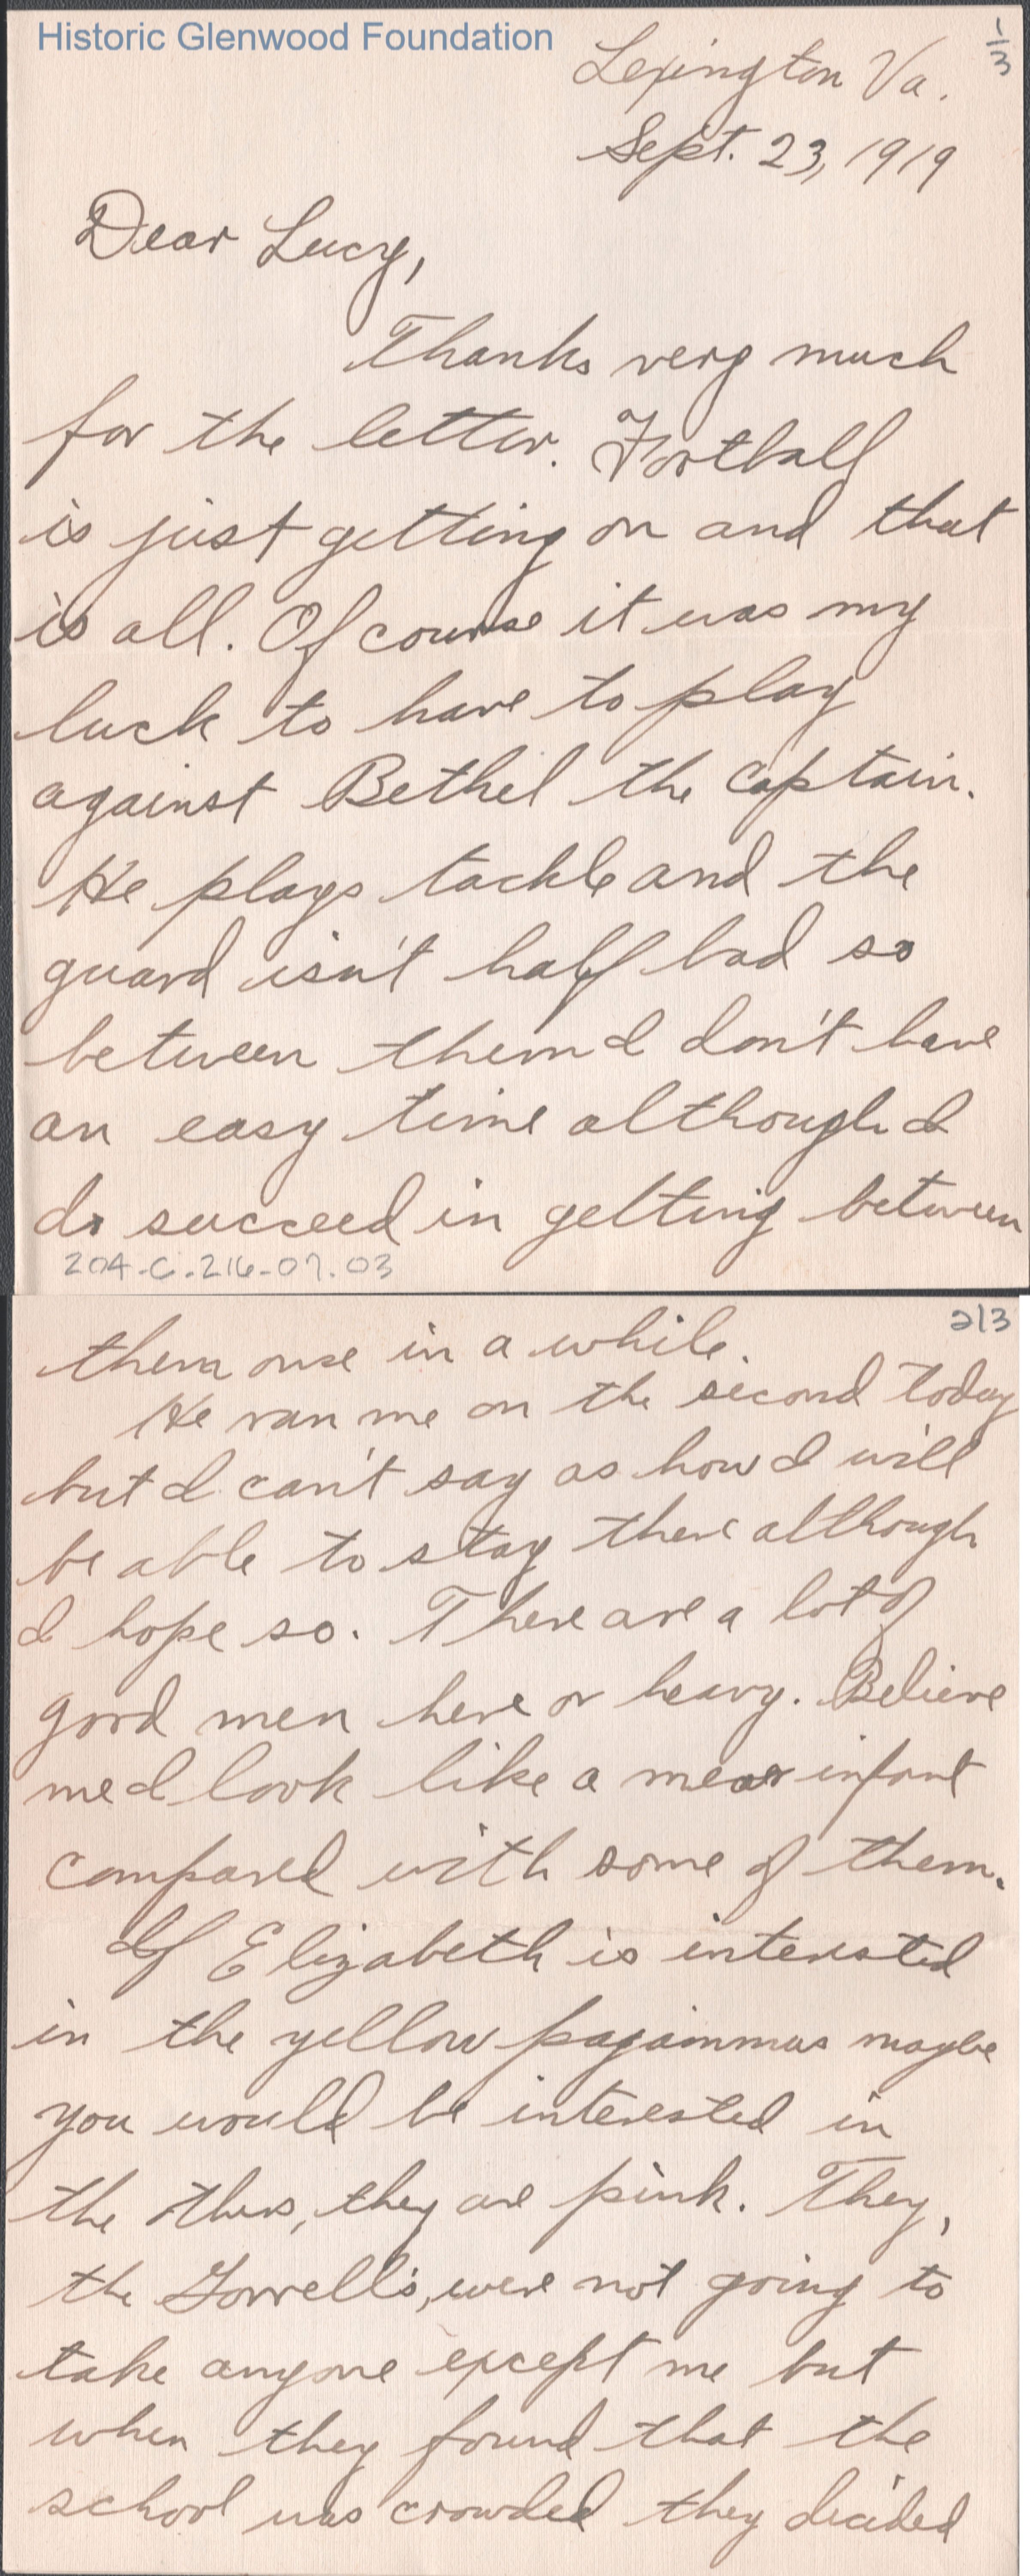 Historic Glenwood Foundation
1/3
Lexington Va.
Sept. 23, 1919
Dear Lucy,
Thanks very much
for the letter. Football
is just getting on and that
is all. Of course it was my
luck to have to play
against Bethel the captain.
He plays tackle and the
guard isn't half bad so
between them I don't have
an easy time although I
do succeed in getting between
204-C.216-07.03
2/3
them once in a while.
He ran me on the second today
but I can't say as how I will
be able to stay there although
I hope so. There are a lot of
good men here or heavy. Believe
me I look like a mear infant
compared with some of them.
If Elizabeth is interested
in the yellow pagammas maybe
you would be interested in
the others, they are pink. They,
the Gorrell's, were not going to
take anyone except me but
when they found that the
school was crowded they decided